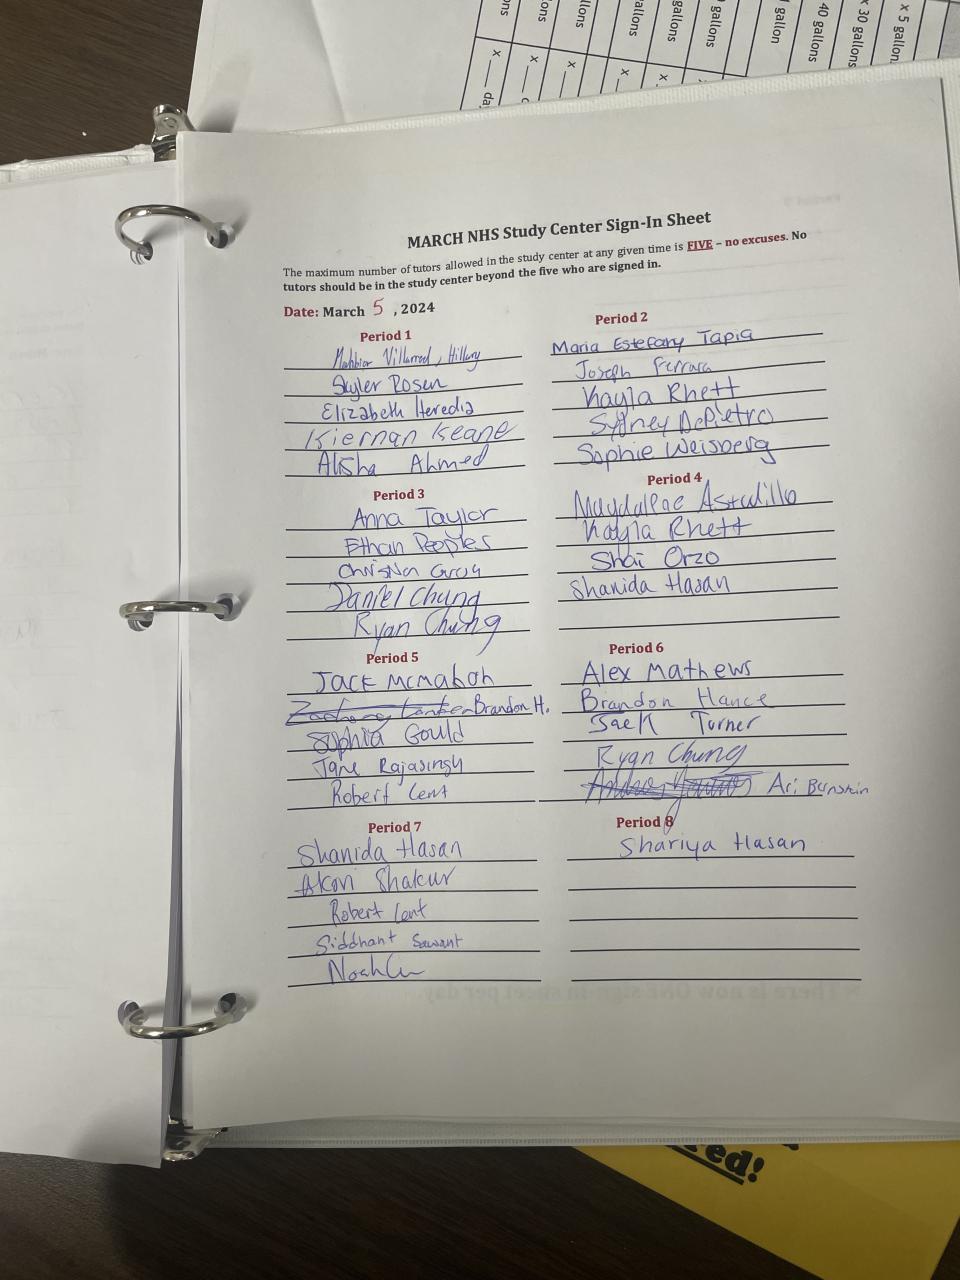 ons
ons
llons
allons
gallons
gallons
gallon
40 gallons
x 30 gallons
x 5 gallon
x ___ da
x ___
x ___
x
x
MARCH NHS Study Center Sign-In Sheet
The maximum number of tutors allowed in the study center at any given time is FIVE – no excuses. No
tutors should be in the study center beyond the five who are signed in.
Date: March 5, 2024
Period 1
Villarreal, Hillary
Skyler Rosen
Elizabeth Heredia
Kiernan Keane
Alisha Ahmed
Period 2
Maria Estefany Tapia
Joseph Ferrara
Kayla Rhett
Sydney DePietro
Sophie Weisberg
Period 3
Anna Taylor
Ethan Peoples
Christian
Daniel Chung
Ryan Chung
Period 4
Astudillo
Kayla Rhett
Shai Orzo
Shanida Hasan
Period 5
Jack McMahon
Zachary Brandon H.
Sophia Gould
Jane Rajasingh
Robert Lent
Period 6
Alex Mathews
Brandon Hance
Jack Turner
Ryan Chung
Ari Bernstein
Period 7
Shanida Hasan
Akon Shakur
Robert Lent
Siddhant Sawant
Noah
Period 8
Shariya Hasan
There is now ONE sign-in sheet per day.
ed!